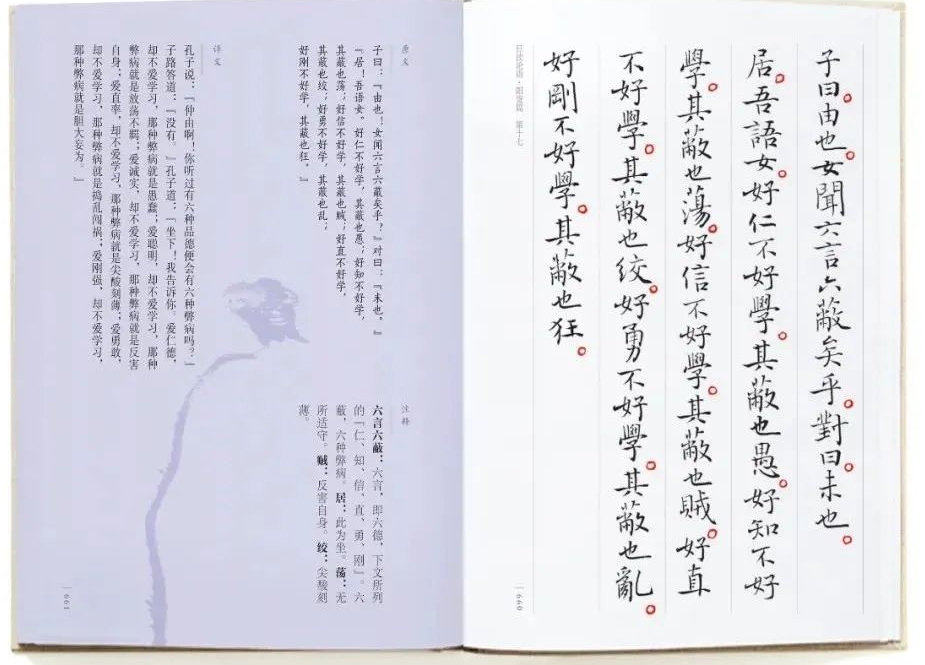 子曰由也女聞六言六蔽矣乎對曰未也
居吾語女好仁不好學其蔽也愚好知不好
學其蔽也蕩好信不好學其蔽也賊好直
不好學其蔽也絞好勇不好學其蔽也亂
好剛不好學其蔽也狂
日课论语·阳货篇 第十七
660
原文
子曰：『由也！女闻六言六蔽矣乎？』对曰：『未也。』
『居！吾语女。好仁不好学，其蔽也愚；好知不好学，
其蔽也荡；好信不好学，其蔽也贼；好直不好学，
其蔽也绞；好勇不好学，其蔽也乱；
好刚不好学，其蔽也狂。』
译文
孔子说：『仲由啊！你听过有六种品德便会有六种弊病吗？』
子路答道：『没有。』孔子道：『坐下！我告诉你。爱仁德，
却不爱学习，那种弊病就是愚蠢；爱聪明，却不爱学习，那种
弊病就是放荡不羁；爱诚实，却不爱学习，那种弊病就是反害
自身；爱直率，却不爱学习，那种弊病就是尖酸刻薄；爱勇敢，
却不爱学习，那种弊病就是捣乱闯祸；爱刚强，却不爱学习，
那种弊病就是胆大妄为。』
注释
六言六蔽：六言，即六德，下文所列
的『仁、知、信、直、勇、刚』。六
蔽，六种弊病。居：此为坐。荡：无
所适守。贼：反害自身。绞：尖酸刻
薄。
661